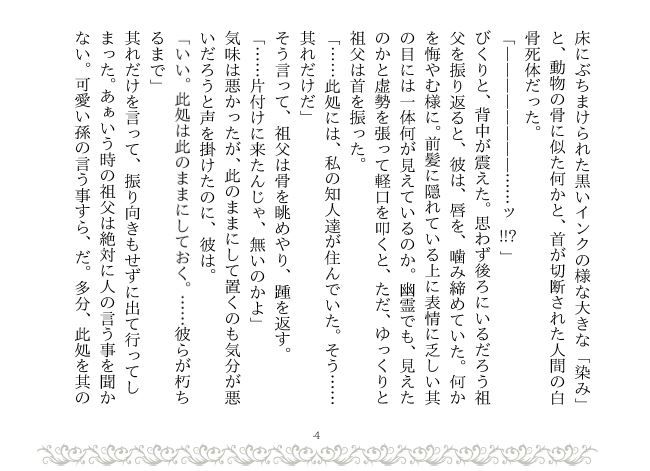 床にぶちまけられた黒いインクの様な大きな「染み」
と、動物の骨に似た何かと、首が切断された人間の白
骨死体だった。
「―――――――……ッ!!?」
びくりと、背中が震えた。思わず後ろにいるだろう祖
父を振り返ると、彼は、唇を、噛み締めていた。何か
を悔やむ様に。前髪に隠れている上に表情に乏しい其
の目には一体何が見えているのか。幽霊でも、見えた
のかと虚勢を張って軽口を叩くと、ただ、ゆっくりと
祖父は首を振った。
「……此処には、私の知人達が住んでいた。そう……
其れだけだ」
そう言って、祖父は骨を眺めやり、踵を返す。
「……片付けに来たんじゃ、無いのかよ」
気味は悪かったが、此のままにして置くのも気分が悪
いだろうと声を掛けたのに、彼は。
「いい。此処は此のままにしておく。……彼らが朽ち
るまで」
其れだけを言って、振り向きもせずに出て行ってし
まった。あぁいう時の祖父は絶対に人の言う事を聞か
ない。可愛い孫の言う事すら、だ。多分、此処を其の
4